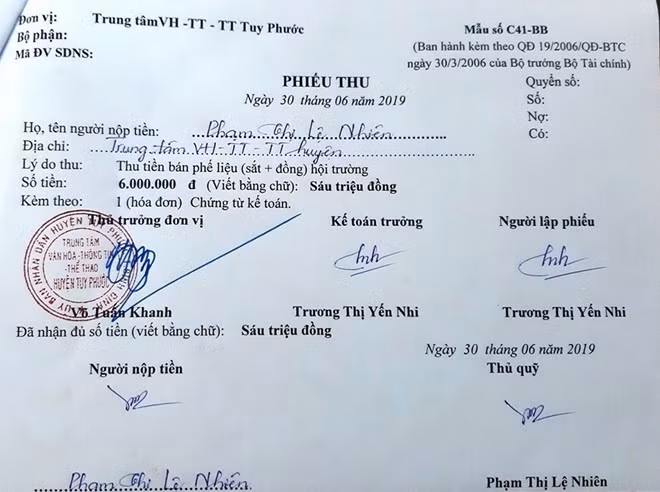 Đơn vị: Trung tâmVH -TT - TT Tuy Phước
Bộ phận:
Mã ĐV SDNS:
Mẫu số C41-BB
(Ban hành kèm theo QĐ 19/2006/QĐ-BTC
ngày 30/3/2006 của Bộ trưởng Bộ Tài chính)
PHIẾU THU
Ngày 30 tháng 06 năm 2019
Quyển số:
Số:
Nợ:
Có:
Họ, tên người nộp tiền: Phạm Thị Lệ Nhiên
Địa chỉ: Trung tâm VH-TT-TT huyện
Lý do thu: Thu tiền bán phế liệu (sắt + đồng) hội trường
Số tiền: 6.000.000 đ (Viết bằng chữ): Sáu triệu đồng
Kèm theo: 1 (hóa đơn) Chứng từ kế toán.
Thủ trưởng đơn vị Kế toán trưởng Người lập phiếu
ỦY BAN NHÂN DÂN HUYỆN TUY PHƯỚC BÌNH ĐỊNH
TRUNG TÂM
VĂN HÓA-THÔNG TIN
-THỂ THAO
HUYỆN TUY PHƯỚC
Võ Tuấn Khanh Trương Thị Yến Nhi Trương Thị Yến Nhi
Đã nhận đủ số tiền (viết bằng chữ): Sáu triệu đồng
Ngày 30 tháng 06 năm 2019
Người nộp tiền Thủ quỹ
Phạm Thị Lệ Nhiên Phạm Thị Lệ Nhiên